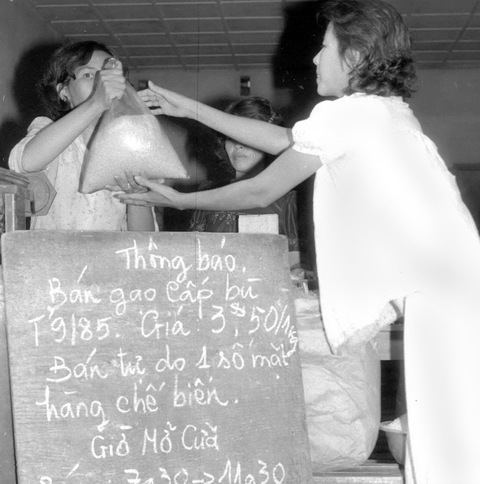 Thông báo.
Bán gạo cấp bù
T9/85. Giá: 3đ,50/1kg
Bán tự do 1 số mặt
hàng chế biến.
Giờ Mở Cửa
Sáng: 7g30->11g30